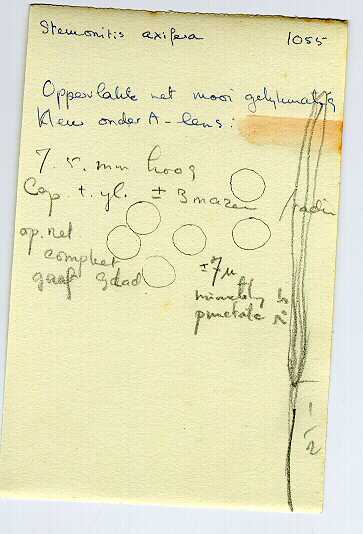 Stemonitis axifera 1055
Oppervlakte net mooi gelijkmatig
Kleur onder A-lens:
7.5. mm hoog
Cap. t. yl. ± 3 mazen / radius
op. net
compleet
gaaf glad
± 7 µ
minutely
punctate
1/2